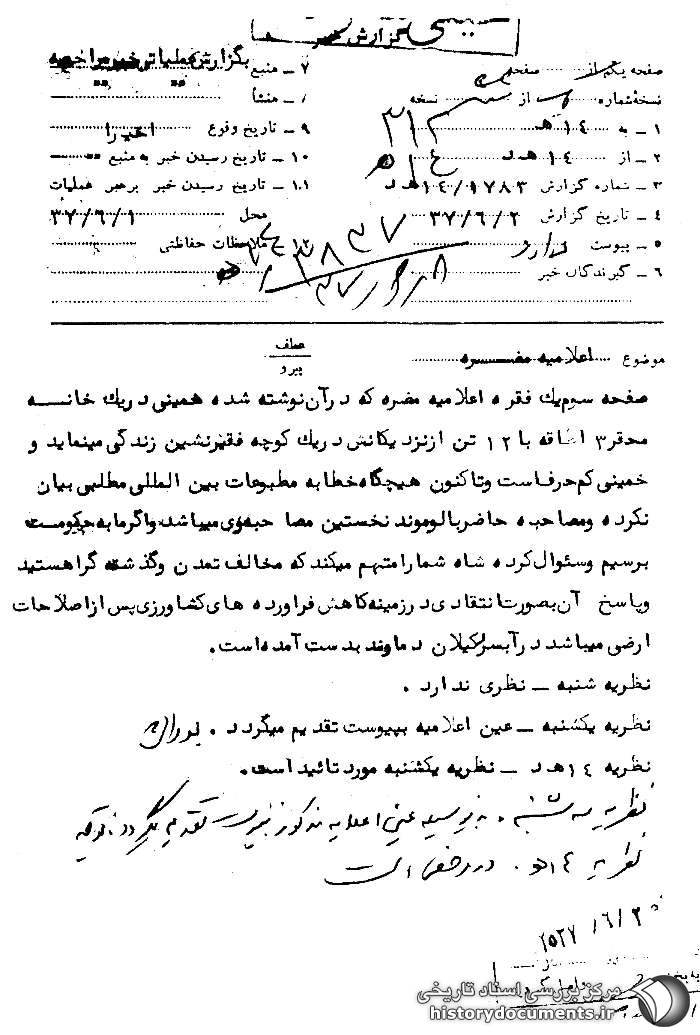 گزارش خبر
صفحه یک از صفحه
نسخه شماره از نسخه
۱ - به ۱۴ هـ ۳۱۲
۲ - از ۱۴ هـ د
۳ - شماره گزارش ۱۴/۱۷۸۳ هـ د
۴ - تاریخ گزارش ۳۷/۶/۲
۵ - پیوست ندارد
۶ - گیرندگان خبر
۷ - منبع بگزارش عملیات خبر مراجعه
۸ - منشأ
۹ - تاریخ وقوع اخیرا
۱۰ - تاریخ رسیدن خبر به منبع
۱۱ - تاریخ رسیدن خبر برهبر عملیات
محل ۳۷/۶/۱
۱۲ - ملاحظات حفاظتی
موضوع اعلامیه مضره
عطف
پیرو
صفحه سوم یک فقره اعلامیه مضره که در آن نوشته شده همینی در یک خانه
محقر ۳ اطاقه با ۱۲ تن از نزدیکانش در یک کوچه فقیرنشین زندگی مینماید و
خمینی کم حرف است و تاکنون هیچگاه خطابه مطبوعات بین المللی مطلبی بیان
نکرده و مصاحبه حاضر با لوموند نخستین مصاحبه وی میباشد و اگر ما به حکومت
برسیم و سئوال کرده شاه شما را متهم میکند که مخالف تمدن و گذشته گرا هستید
و پاسخ آن بصورت انتقادی در زمینه کاهش فراورده های کشاورزی پس از اصلاحات
ارضی میباشد در آبسرد گیلان دماوند بدست آمده است.
نظریه شنبه - نظری ندارد .
نظریه یکشنبه - عین اعلامیه بپیوست تقدیم میگردد .
نظریه ۱۴ هـ د - نظریه یکشنبه مورد تائید است.
نظریه سه شنبه . بدینوسیله عین اعلامیه مذکور تقدیم میگردد .
نظریه ۱۴ هـ . است
۲۵۳۷/۶/۲
مرکز بررسی اسناد تاریخی
historydocuments.ir